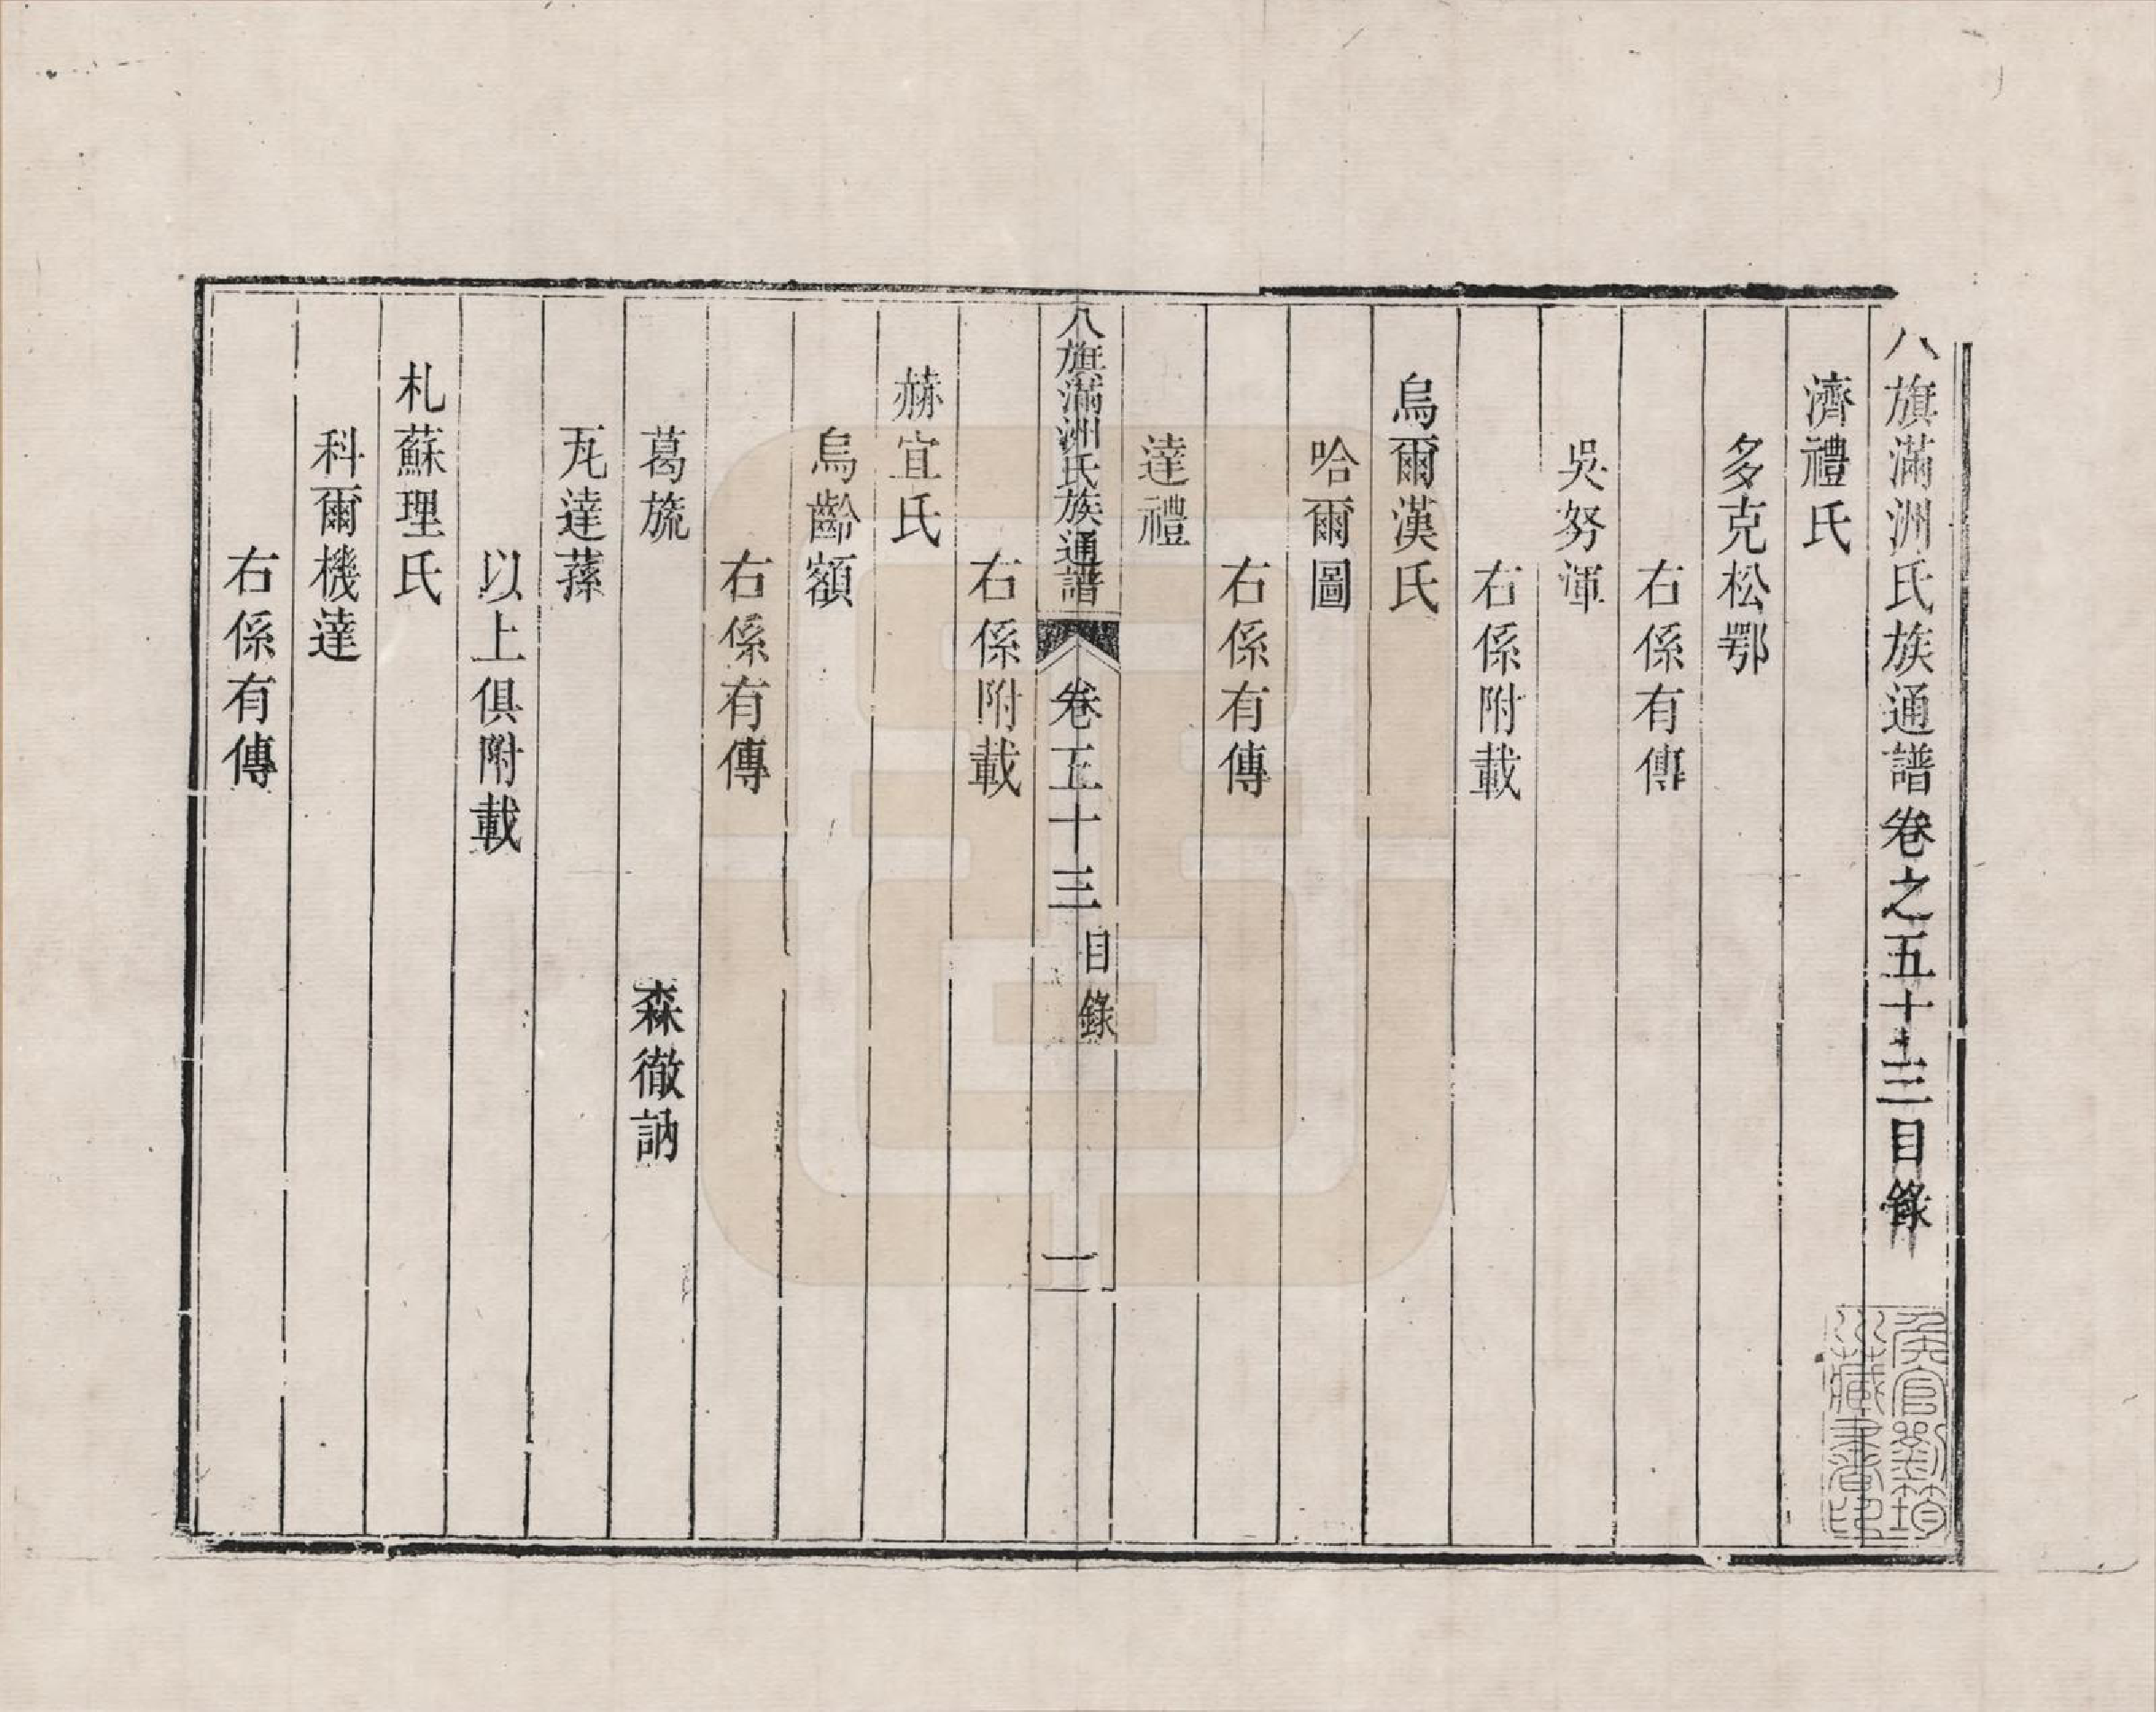 八旗滿洲氏族通譜卷之五十三目錄
濟禮氏
多克松鄂
右係有傳
吳努渾
右係附載
烏爾漢氏
哈爾圖
右係有傳
達禮
八旗滿洲氏族通譜 卷五十三 目錄 一
右係附載
赫宜氏
烏齡額
右係有傳
葛旒 森徹訥
瓦達蓀
以上俱附載
札蘇理氏
科爾機達
右係有傳
侯官劉筠川藏書印